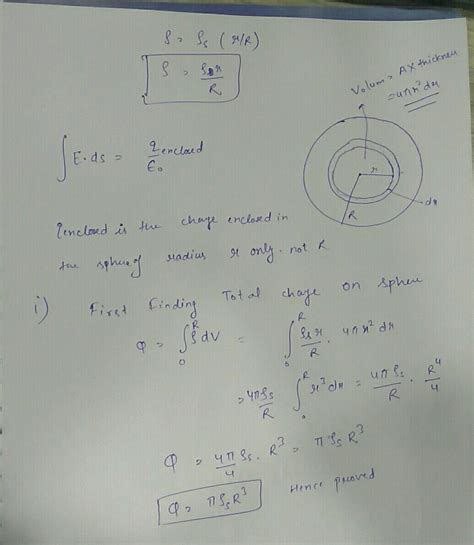 ρ = ρs (r/R)
ρ = ρs r / R
Volume = A X thickness
= 4πr² dr
∫ E · ds = q enclosed / ε₀
r
dr
R
qenclosed is the charge enclosed in
the sphere of radius r only. not R
i) First Finding Total charge on sphere
φ = ∫₀ᴿ ρ dV = ∫₀ᴿ ρs r / R · 4πr² dr
= 4πρs / R ∫₀ᴿ r³ dr = 4πρs / R · R⁴ / 4
φ = 4π / 4 ρs · R³ = πρs R³
φ = πρs R³ Hence proved